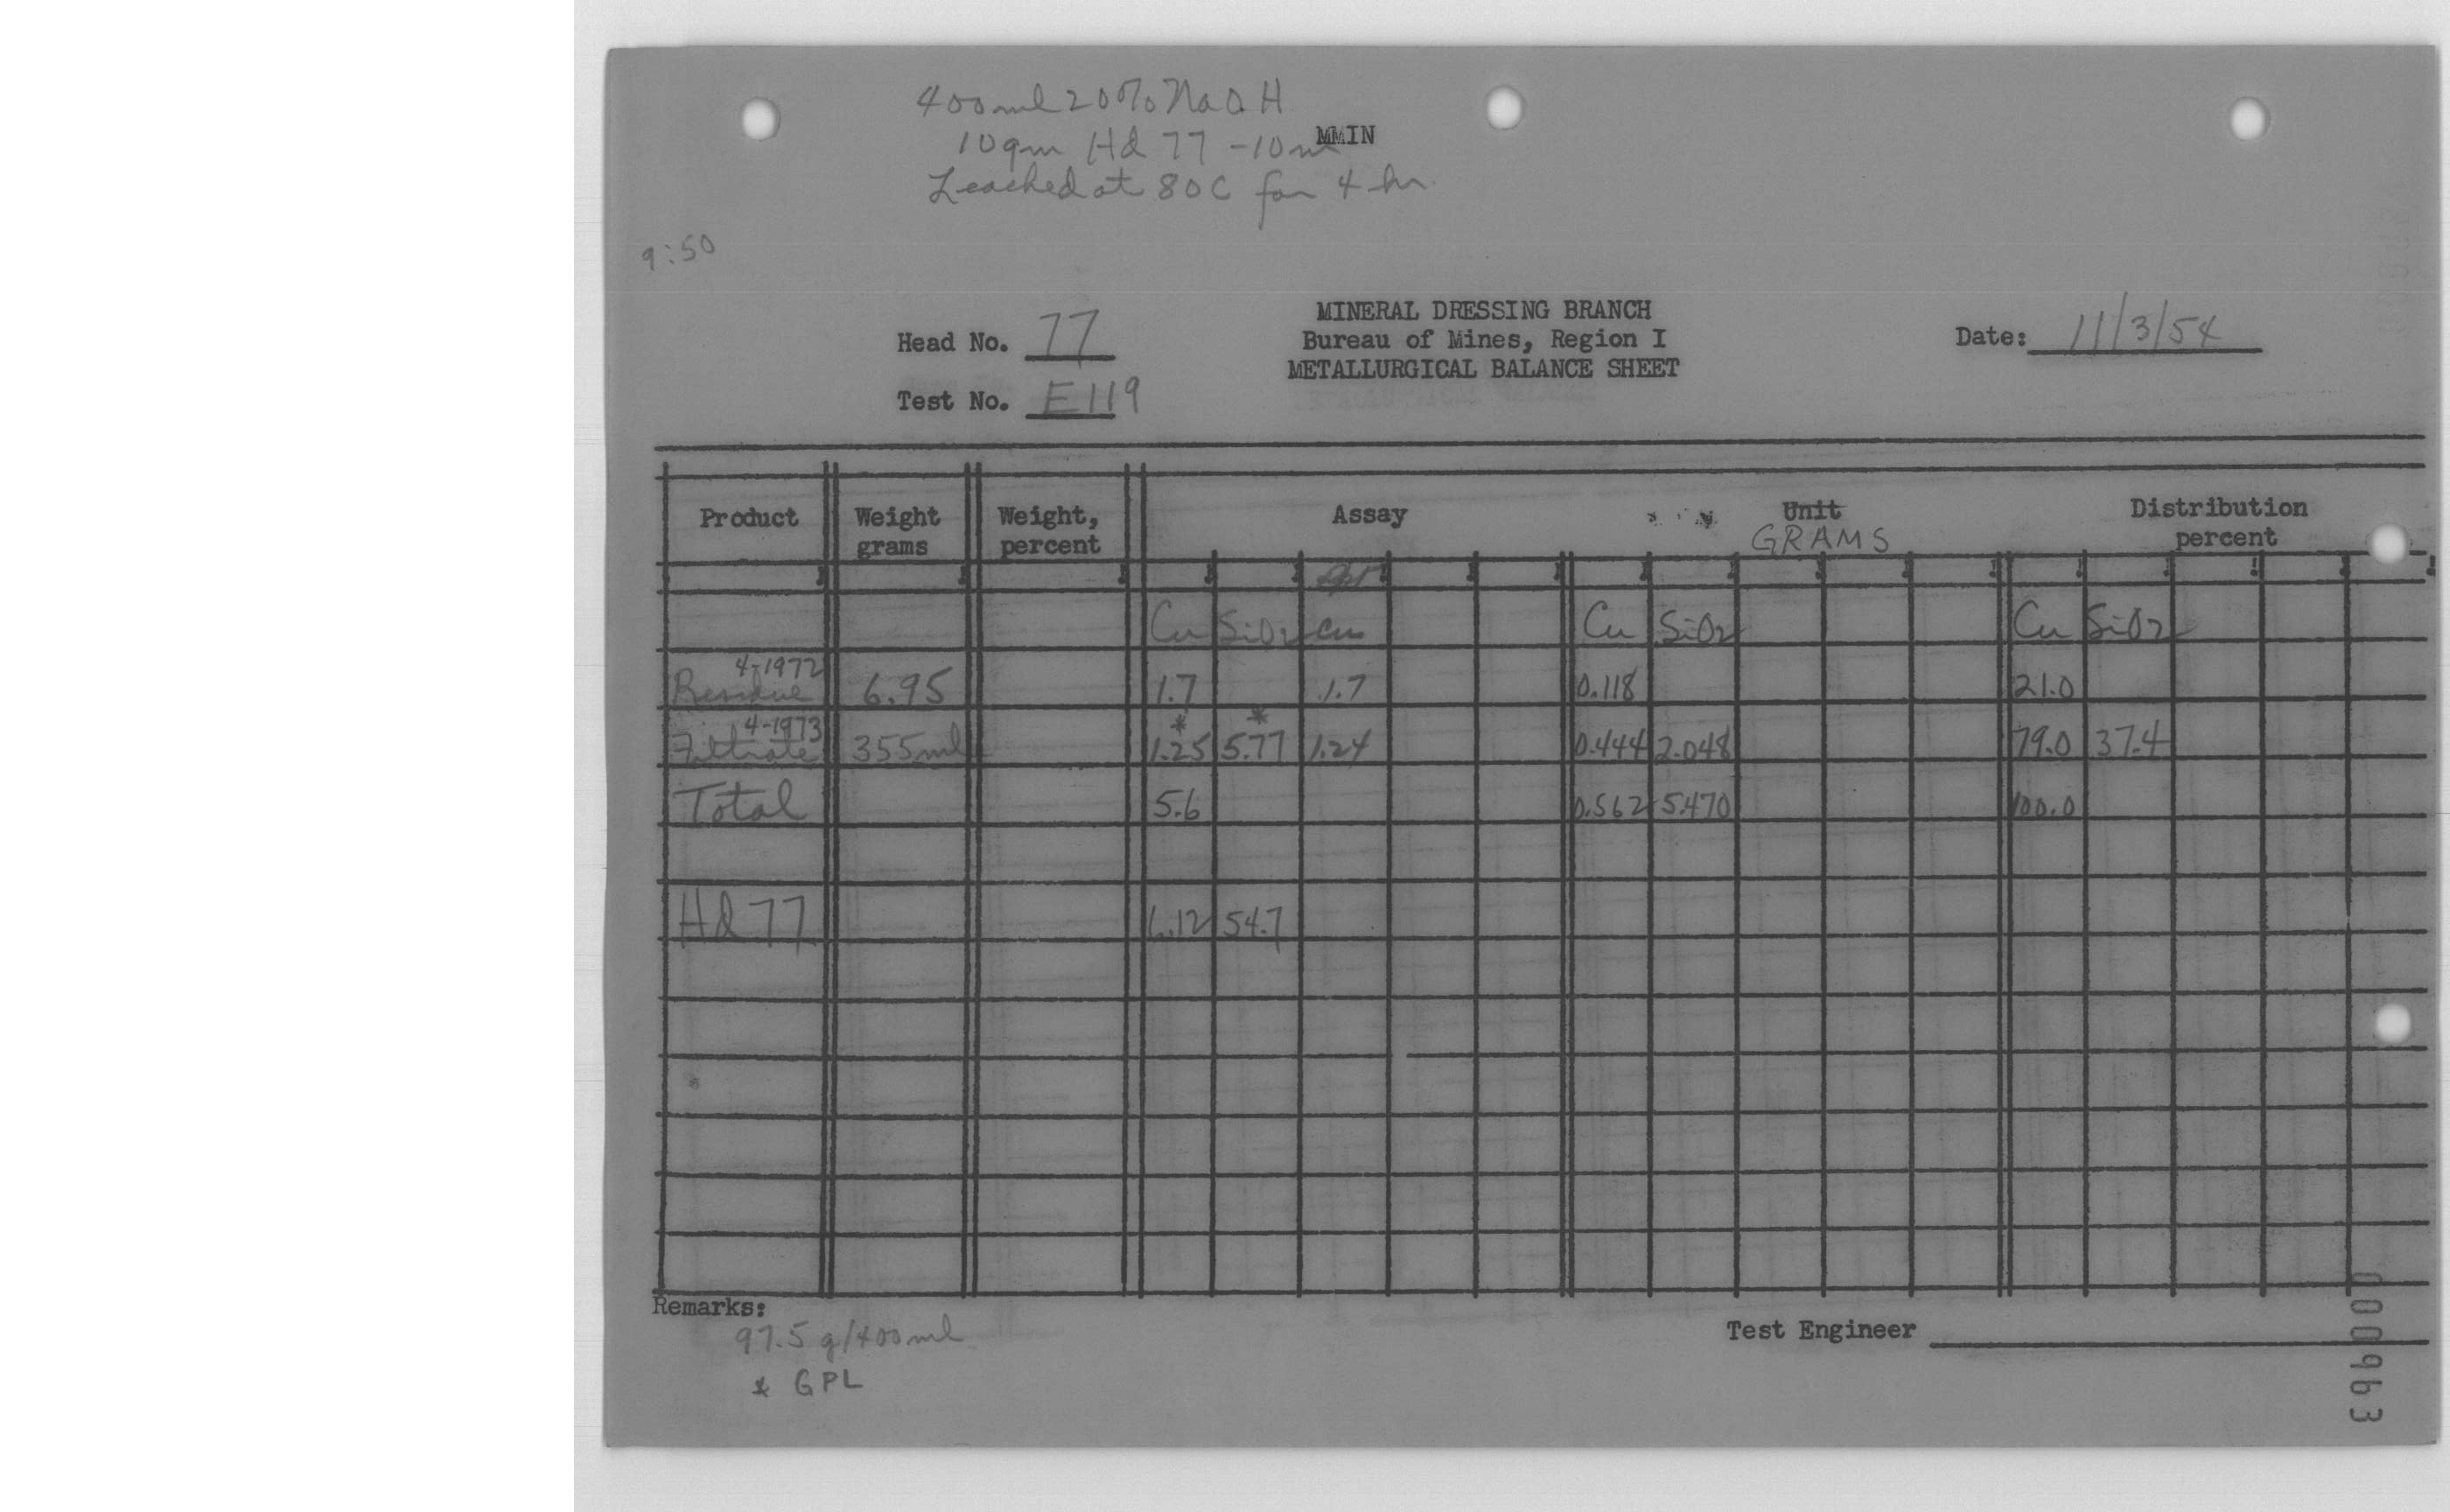 400 ml 20% NaOH
10 gm Hd 77 -10 m
MMIN
Leached at 80C for 4 hr.
9:50
Head No. 77
Test No. E119
MINERAL DRESSING BRANCH
Bureau of Mines, Region I
METALLURGICAL BALANCE SHEET
Date: 11/3/54
Product Weight grams Weight, percent Assay Unit GRAMS Distribution percent
Cu SiO2 Cu Cu SiO2 Cu SiO2
4-1972
Residue 6.95 1.7 1.7 0.118 21.0
4-1973 * *
Filtrate 355ml 1.25 5.77 1.24 0.444 2.048 79.0 37.4
Total 5.6 0.562 5.470 100.0
Hd 77 6.12 54.7
Remarks:
97.5 g/400 ml
* GPL
Test Engineer
00963